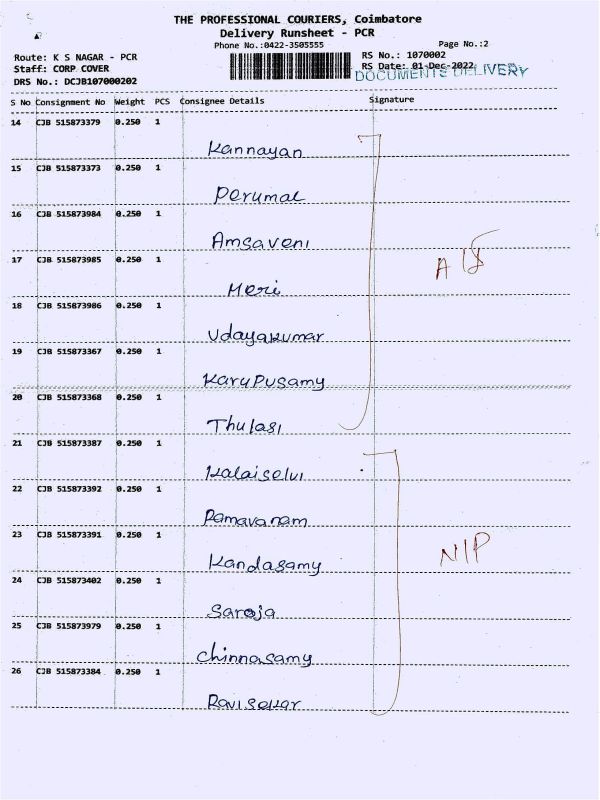 THE PROFESSIONAL COURIERS, Coimbatore
Delivery Runsheet - PCR
Phone No.:0422-3505555
Page No.:2
Route: K S NAGAR - PCR
RS No.: 1070002
Staff: CORP COVER
RS Date: 01-Dec-2022
DRS No.: DCJB107000202
DOCUMENTS DELIVERY
S No Consignment No Weight PCS Consignee Details Signature
14 CJB 515873379 0.250 1
Kannayan
15 CJB 515873373 0.250 1
Perumal
16 CJB 515873984 0.250 1
Amsaveni
17 CJB 515873985 0.250 1
Meri
18 CJB 515873986 0.250 1
Udayakumar
19 CJB 515873367 0.250 1
KaruPusamy
20 CJB 515873368 0.250 1
Thulasi
21 CJB 515873387 0.250 1
Kalaiselvi
22 CJB 515873392 0.250 1
Ramavanam
23 CJB 515873391 0.250 1
Kandasamy
NIP
24 CJB 515873402 0.250 1
Saroja
25 CJB 515873979 0.250 1
Chinnasamy
26 CJB 515873384 0.250 1
Ravisekar